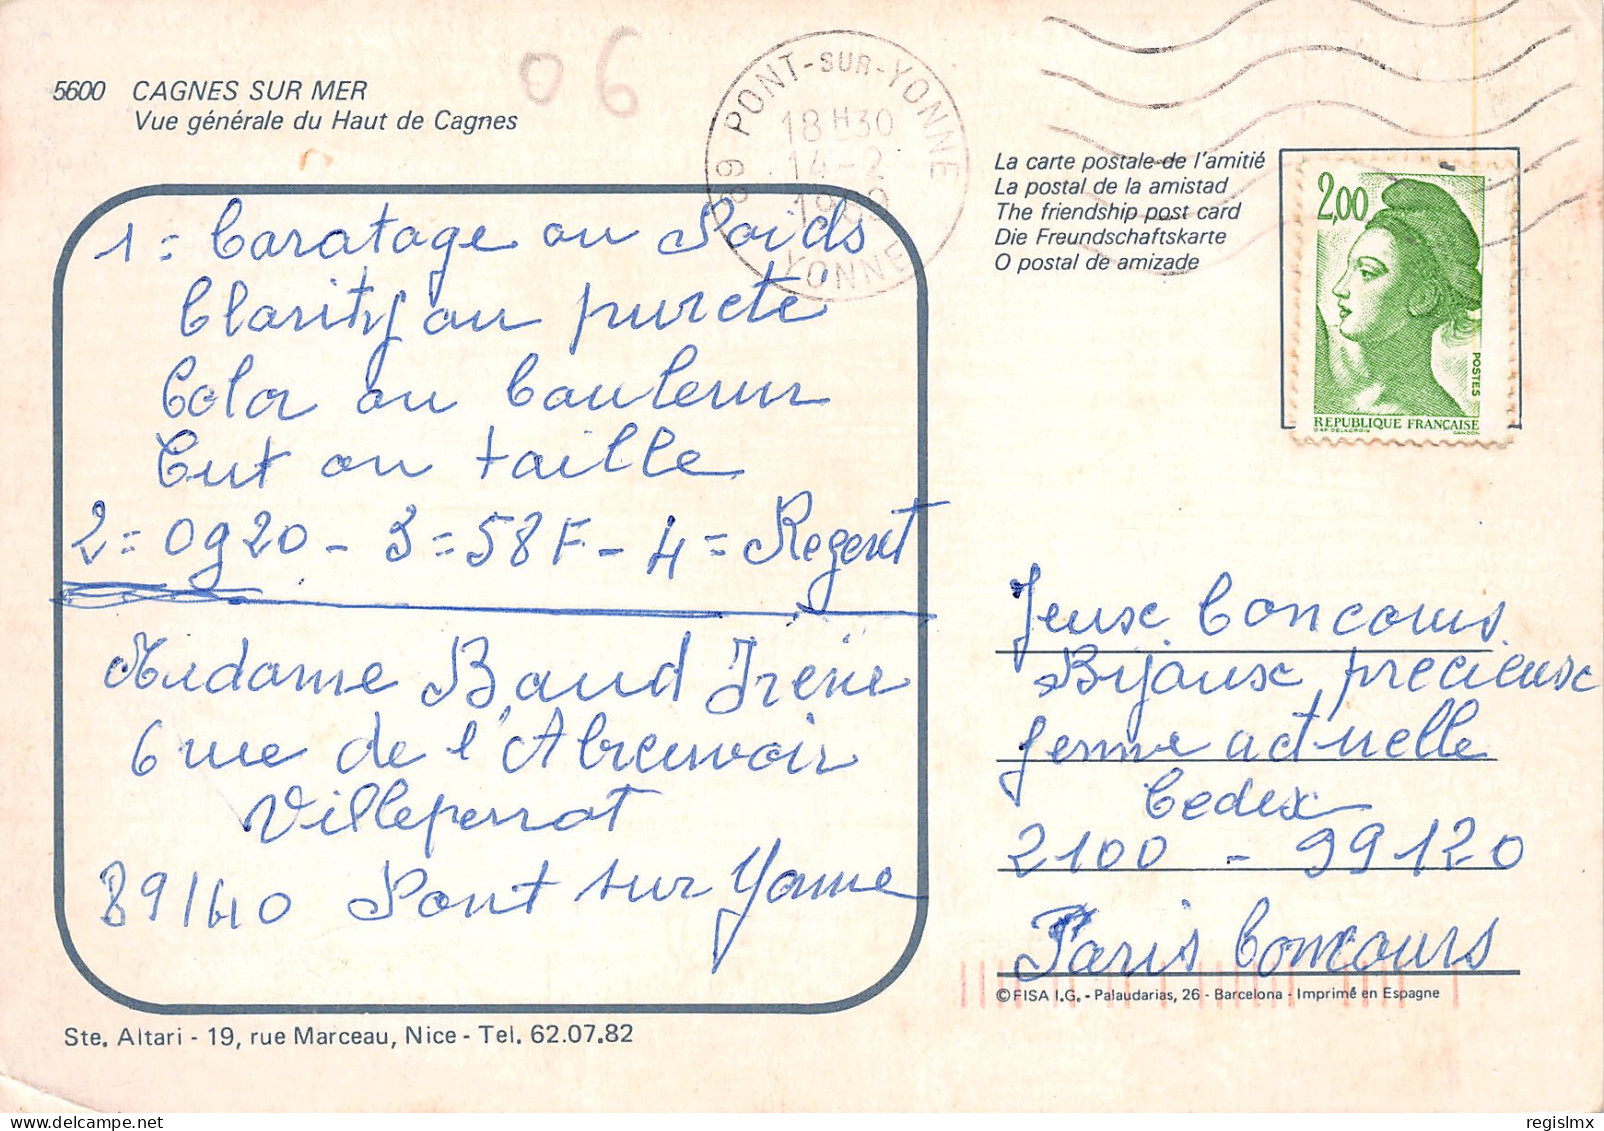 5600 CAGNES SUR MER
Vue générale du Haut de Cagnes
06
89 PONT-SUR-YONNE
18H30
14-2
YONNE
La carte postale de l'amitié
La postal de la amistad
The friendship post card
Die Freundschaftskarte
O postal de amizade
2,00
POSTES
REPUBLIQUE FRANÇAISE
D'AP. DELACROIX GANDON
1 = Caratage ou Poids
Clarity ou pureté
Color ou Couleur
Cut ou taille
2 = 0g20 - 3 = 58F - 4 = Regent
Madame Baud Irène
6 rue de l'Abreuvoir
Villeperrot
89140 Pont sur Yonne
Jeux Concours
Bijoux precieux
femme actuelle
Cedex
2100 - 99120
Paris Concours
© FISA I.G. - Palaudarias, 26 - Barcelona - Imprimé en Espagne
Ste. Altari - 19, rue Marceau, Nice - Tel. 62.07.82
regislmx